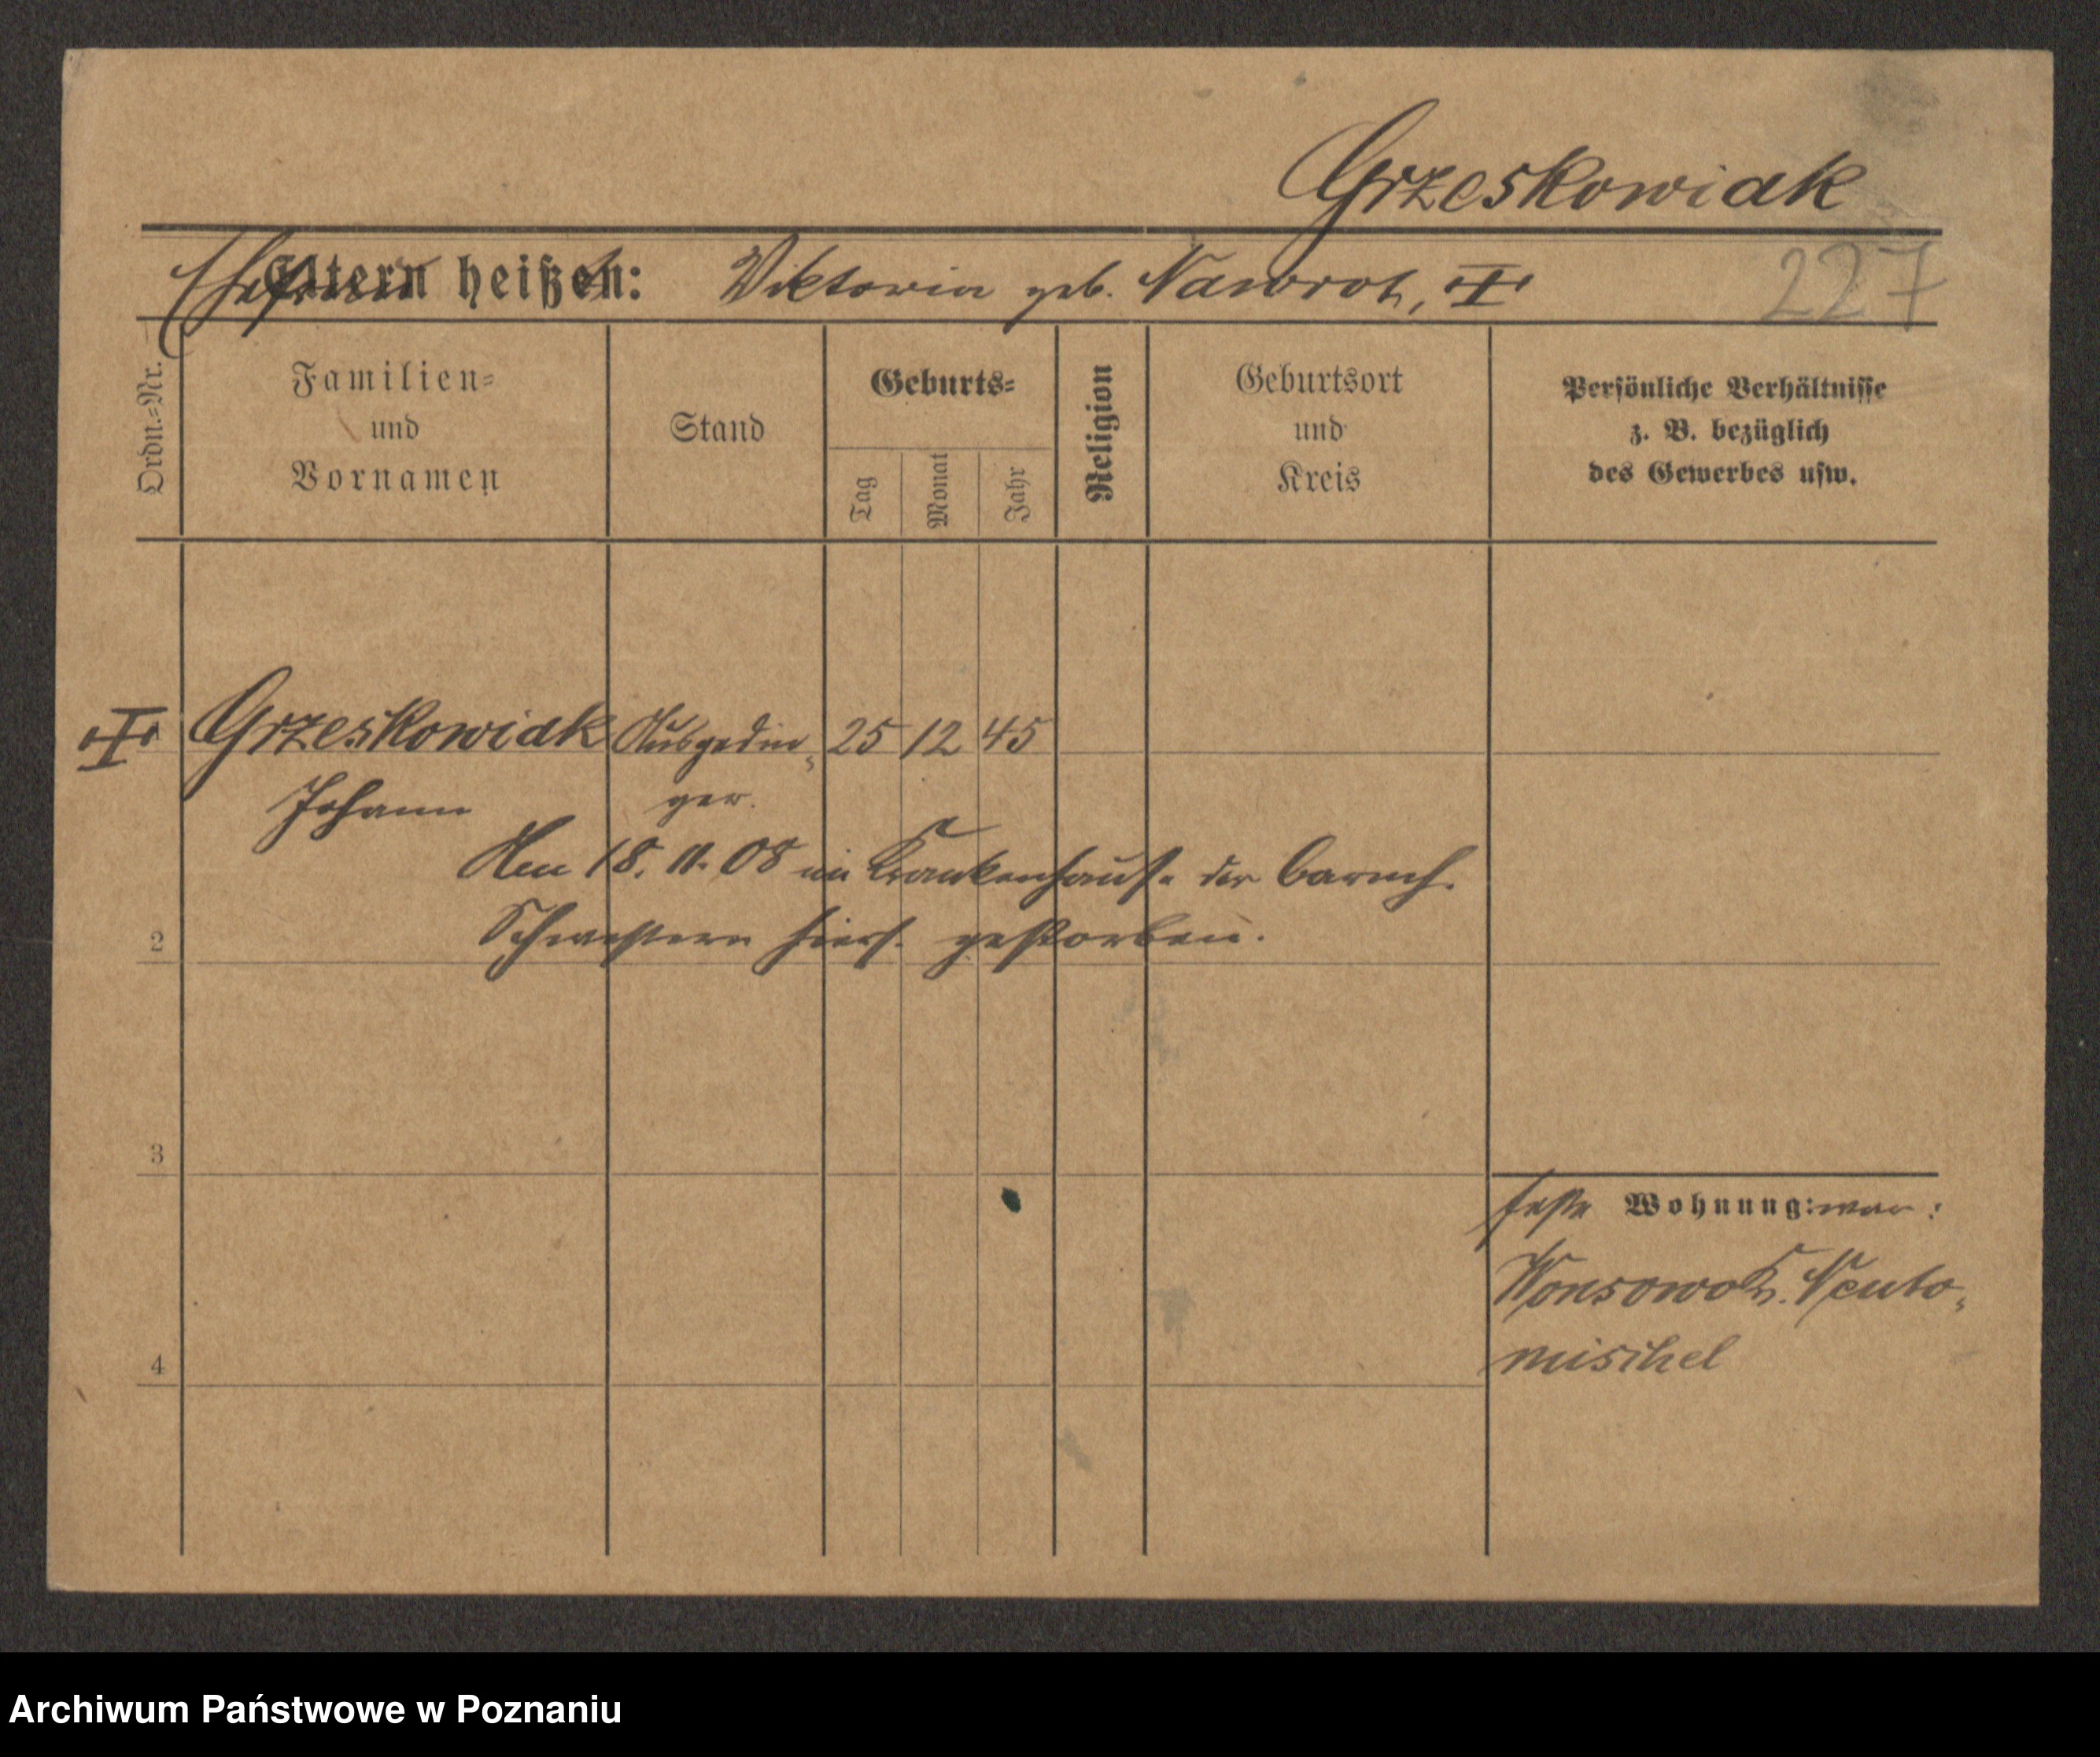 Grzeskowiak
Eltern heißen: Viktoria geb. Nawrot,
227
Ordn.=Nr.
Familien=
und
Vornamen
Stand
Geburts=
Tag
Monat
Jahr
Religion
Geburtsort
und
Kreis
Persönliche Verhältnisse
z. B. bezüglich
des Gewerbes usw.
Grzeskowiak Ausgedin= 25 12 45
Johann ger.
Am 18. 11. 08 im Krankenhause der barmh.
Schwestern hiers. gestorben.
2
3
4
feste Wohnung: war:
Wonsowo K. Neuto=
mischel
Archiwum Państwowe w Poznaniu